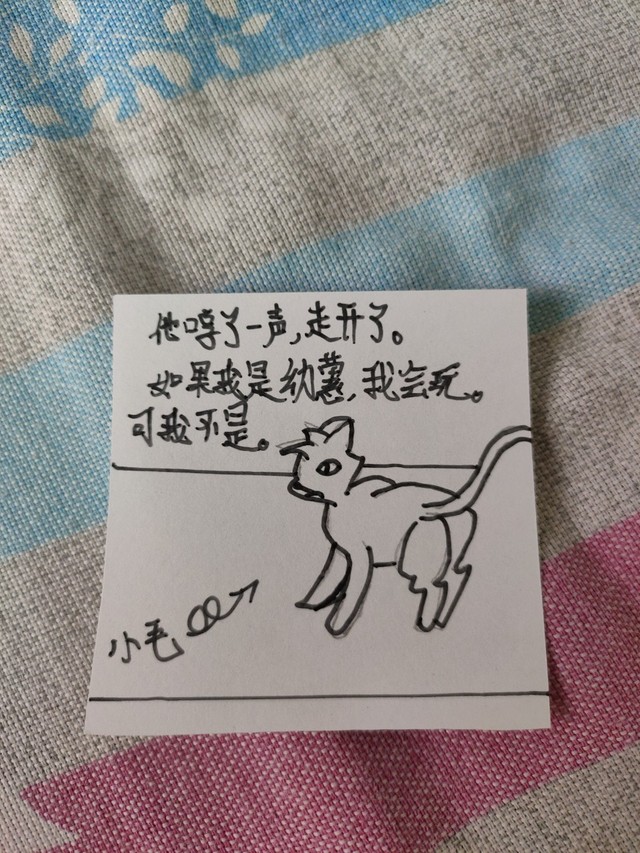 他哼了一声,走开了。
如果我是幼薯,我会玩。
可我不是。
小毛